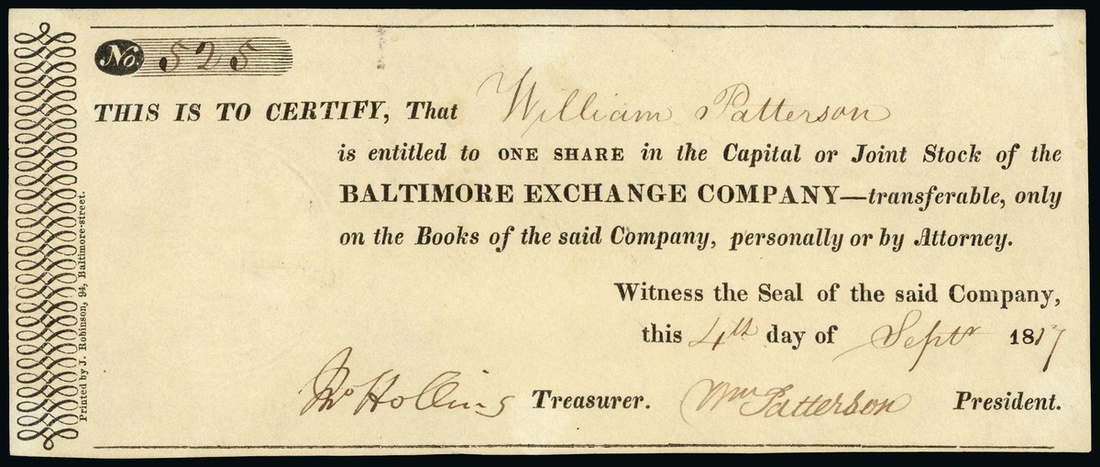 No. 525
THIS IS TO CERTIFY, That William Patterson
is entitled to ONE SHARE in the Capital or Joint Stock of the
BALTIMORE EXCHANGE COMPANY—transferable, only
on the Books of the said Company, personally or by Attorney.
Witness the Seal of the said Company,
this 4th day of Septr 1817
Jno Hollins Treasurer. Wm Patterson President.
Printed by J. Robinson, 94, Baltimore-street.